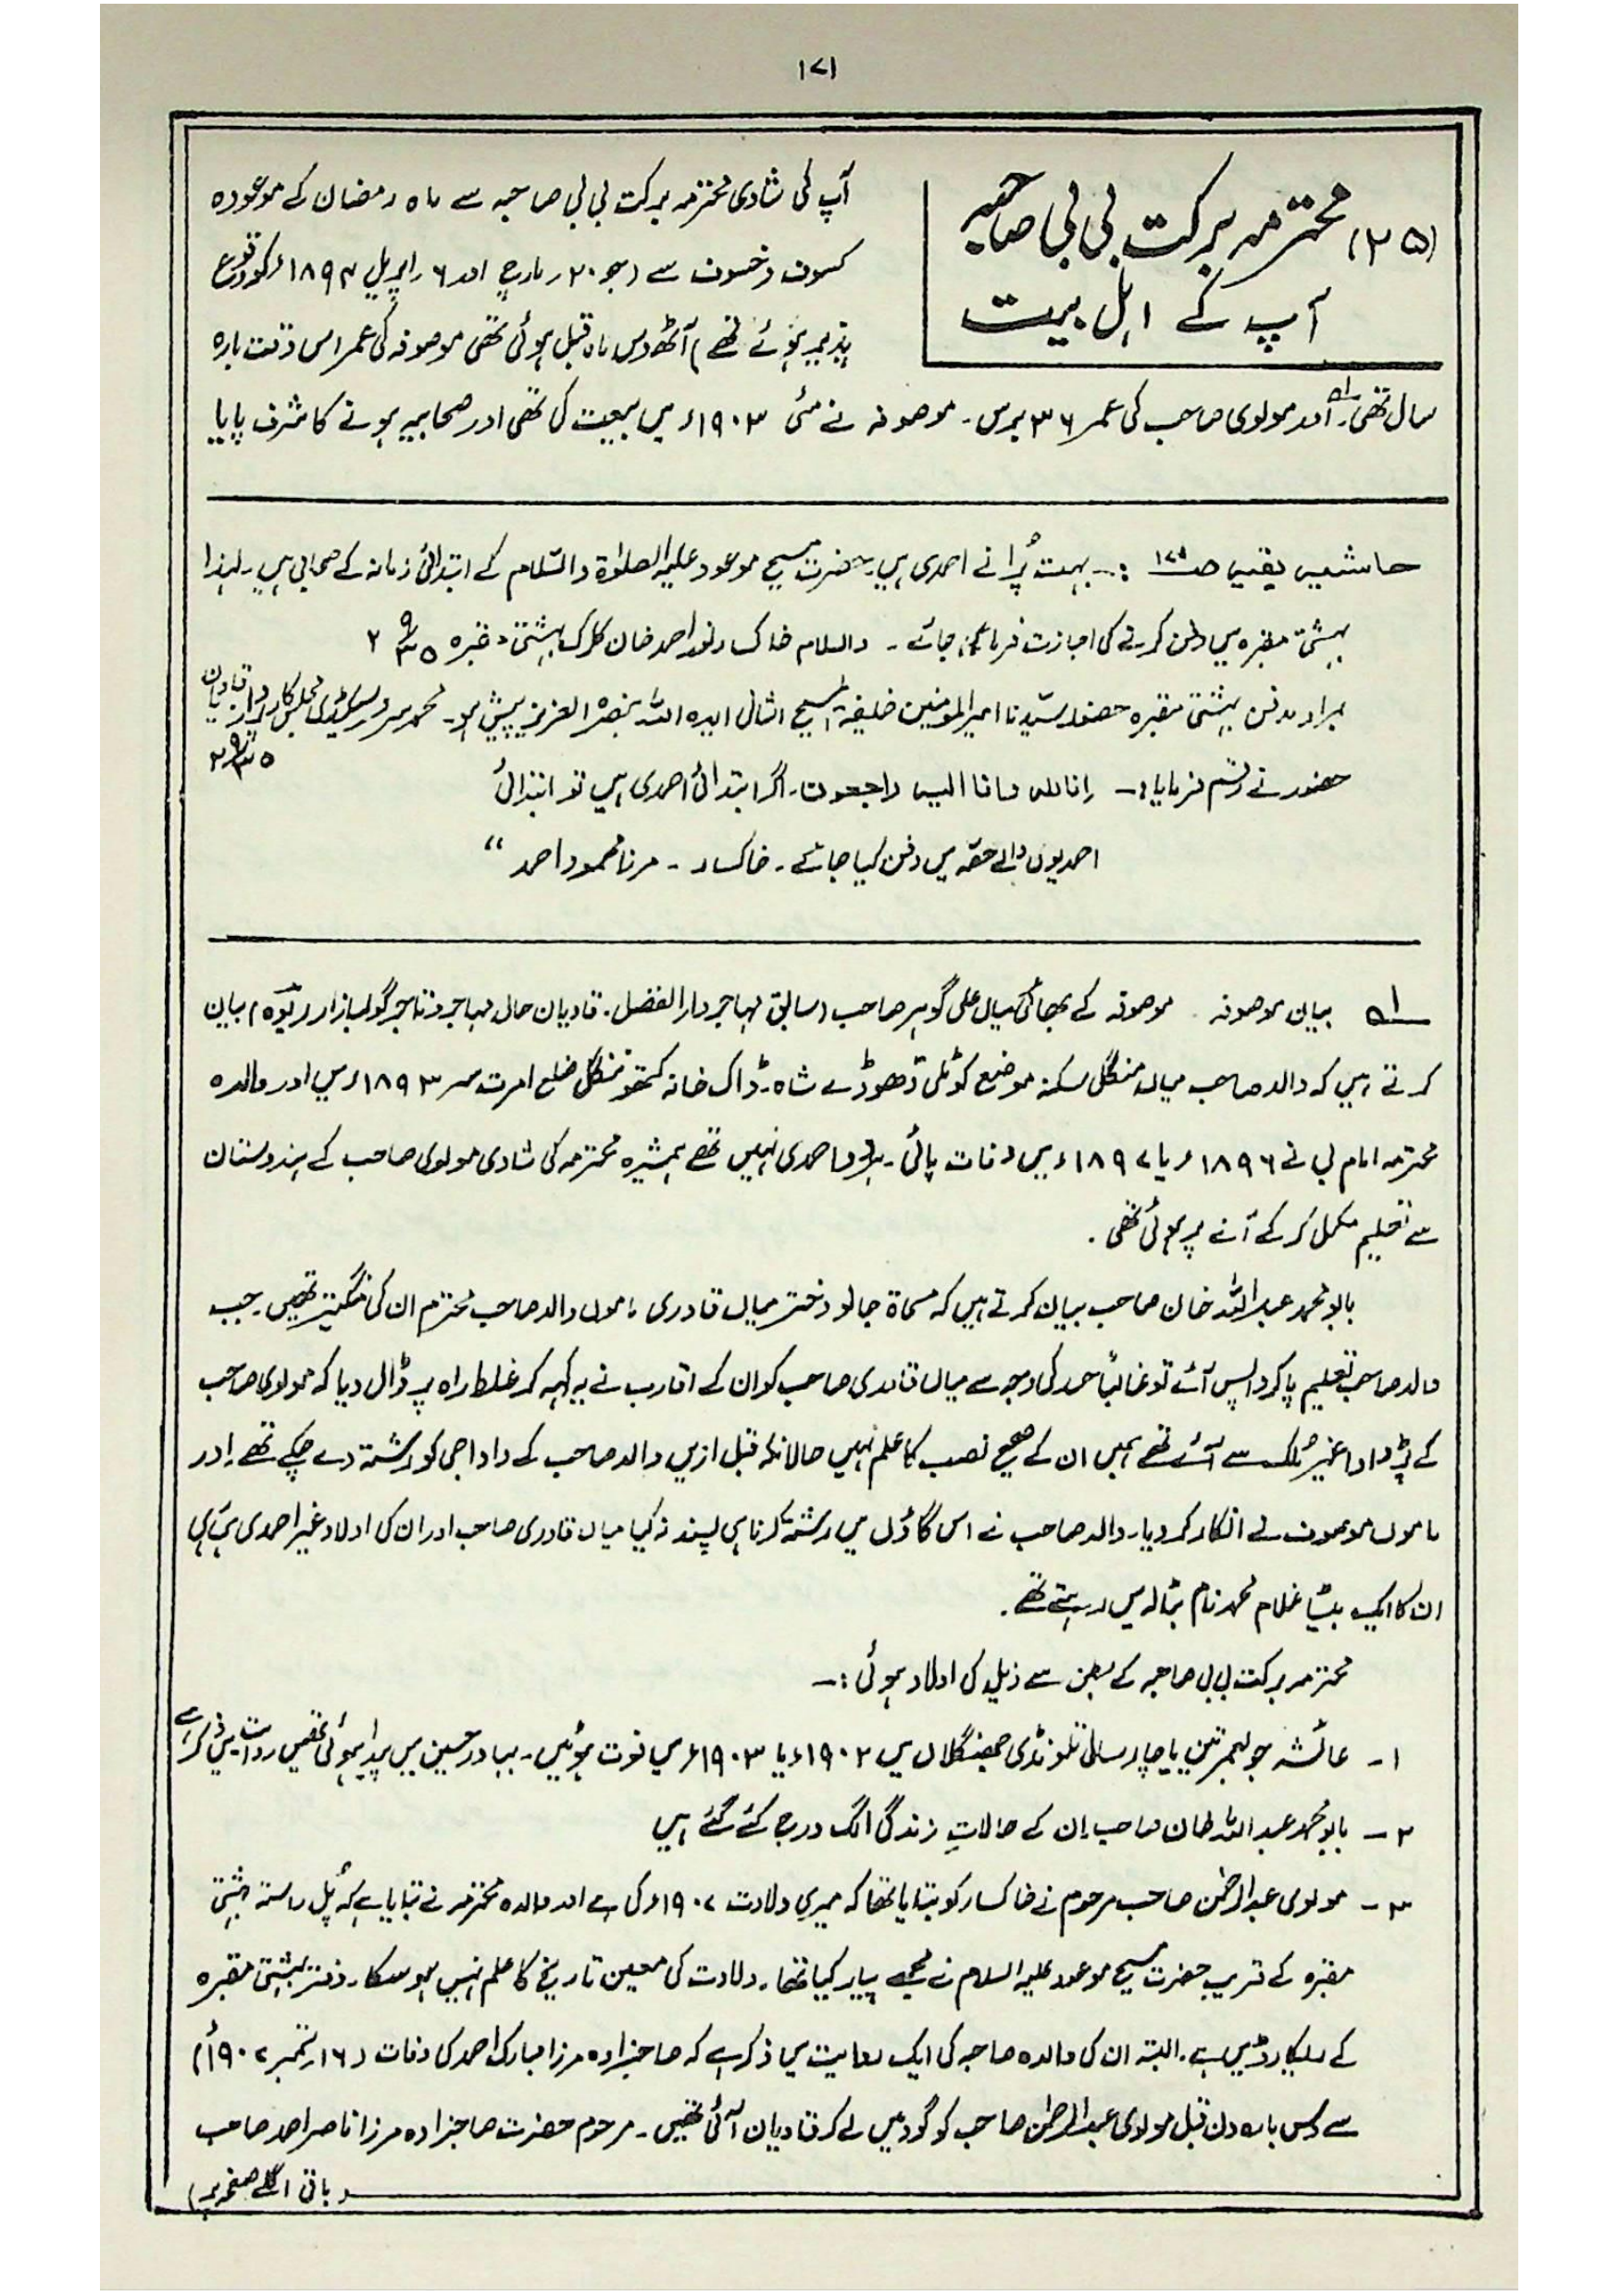 ۱۷۱
(۲۵) محترمہ برکت بی بی صاحبہ
آپ کے اہل بیت
آپ کی شادی محترمہ برکت بی بی صاحبہ سے ماہ رمضان کے موعودہ
کسوف و خسوف سے (جو ۲۰ر مارچ اور ۶ راپریل ۱۸۹۴ء کو وقوع
پذیر ہوئے تھے) آٹھ دس ماہ قبل ہوئی تھی موصوفہ کی عمر اس وقت بارہ
سال تھی۔ اور مولوی صاحب کی عمر ۳۶ برس۔ موصوفہ نے مئی ۱۹۰۳ء میں بیعت کی تھی اور صحابیہ ہونے کا شرف پایا
حاشیہ بقیہ :۔ بہت پُرانے احمدی ہیں۔ حضرت مسیح موعود علیہ الصلوٰۃ والسّلام کے ابتدائی زمانہ کے صحابی ہیں۔ لہٰذا
بہشتی مقبرہ میں دفن کرنے کی اجازت فرمائی جائے۔ والسلام خاکسار نور احمد خان کلرک بہشتی مقبرہ
برادر مدفن بہشتی مقبرہ حضور سیّدنا امیر المومنین خلیفۃ المسیح الثانی ایدہ اللہ بنصرہ العزیز پیش ہو۔ محمد سرور سیکرٹری مجلس کارپرداز قادیان
حضور نے رقم فرمایا:۔ انا للہ و انا الیہ راجعون۔ اگر ابتدائی احمدی ہیں تو ابتدائی
احمدیوں والے حصّہ میں دفن کیا جائے۔ خاکسار۔ مرزا محمود احمد "
لہ بیان موصوفہ۔ موصوفہ کے بھائی میاں علی گوہر صاحب (سابق مہاجر دارالفضل۔ قادیان حال مہاجر و تاجر گولبازار ربوہ) بیان
کرتے ہیں کہ والد صاحب میاں منگل سکنہ موضع کوٹلی ڈھوڈے شاہ۔ ڈاک خانہ کتھو ننگل ضلع امرت سر ۱۸۹۳ء میں اور والدہ
محترمہ امام بی نے ۱۸۹۶ء یا ۱۸۹۷ء میں وفات پائی۔ ہر دو احمدی نہیں تھے ہمشیرہ محترمہ کی شادی مولوی صاحب کے ہندوستان
سے تعلیم مکمل کر کے آنے پر ہوئی تھی۔
بابو محمد عبداللہ خان صاحب بیان کرتے ہیں کہ مسماۃ جالو دختر میاں قادری ماموں والد صاحب محترم ان کی منگیتر تھیں۔ جب
والد صاحب تعلیم پا کر واپس آئے تو غالباً حسد کی وجہ سے میاں قادری صاحب کو ان کے اقارب نے یہ کہہ کر غلط راہ پر ڈال دیا کہ مولوی صاحب
کے پڑدادا غیر مُلک سے آئے تھے ہمیں ان کے صحیح نصب کا علم نہیں حالانکہ قبل ازیں والد صاحب کے دادا جی کو رشتہ دے چکے تھے۔ اور
ماموں موصوف نے انکار کر دیا۔ والد صاحب نے اس گاؤں میں رشتہ کرنا ہی پسند نہ کیا میاں قادری صاحب اور ان کی اولاد غیر احمدی ہی
ان کا ایک بیٹا غلام محمد نام بٹالہ میں رہتے تھے۔
محترمہ برکت بی بی صاحبہ کے بطن سے ذیل کی اولاد ہوئی :۔
۱۔ عائشہ جو بعمر تین یا چار سال تلونڈی جھنگلاں میں ۱۹۰۲ء یا ۱۹۰۳ء میں فوت ہوئیں۔ بہادر حسین میں پیدا ہوئی تھیں روایت میں ذکر ہے
۲۔ بابو محمد عبداللہ خان صاحب۔ ان کے حالاتِ زندگی الگ درج کئے گئے ہیں
۳۔ مولوی عبدالرحمٰن صاحب مرحوم نے خاکسار کو بتایا تھا کہ میری ولادت ۱۹۰۷ء کی ہے اور والدہ محترمہ نے بتایا ہے کہ پُل راستہ بہشتی
مقبرہ کے قریب حضرت مسیح موعود علیہ السلام نے مجھے پیار کیا تھا۔ ولادت کی معین تاریخ کا علم نہیں ہو سکا۔ دفتر بہشتی مقبرہ
کے ریکارڈ میں ہے۔ البتہ ان کی والدہ صاحبہ کی ایک روایت میں ذکر ہے کہ صاحبزادہ مرزا مبارک احمد کی وفات (۱۶ر ستمبر ۱۹۰۷ء)
سے دس بارہ دن قبل مولوی عبدالرحمٰن صاحب کو گود میں لے کر قادیان آئی تھیں۔ مرحوم حضرت صاحبزادہ مرزا ناصر احمد صاحب
(باقی اگلے صفحہ پر)